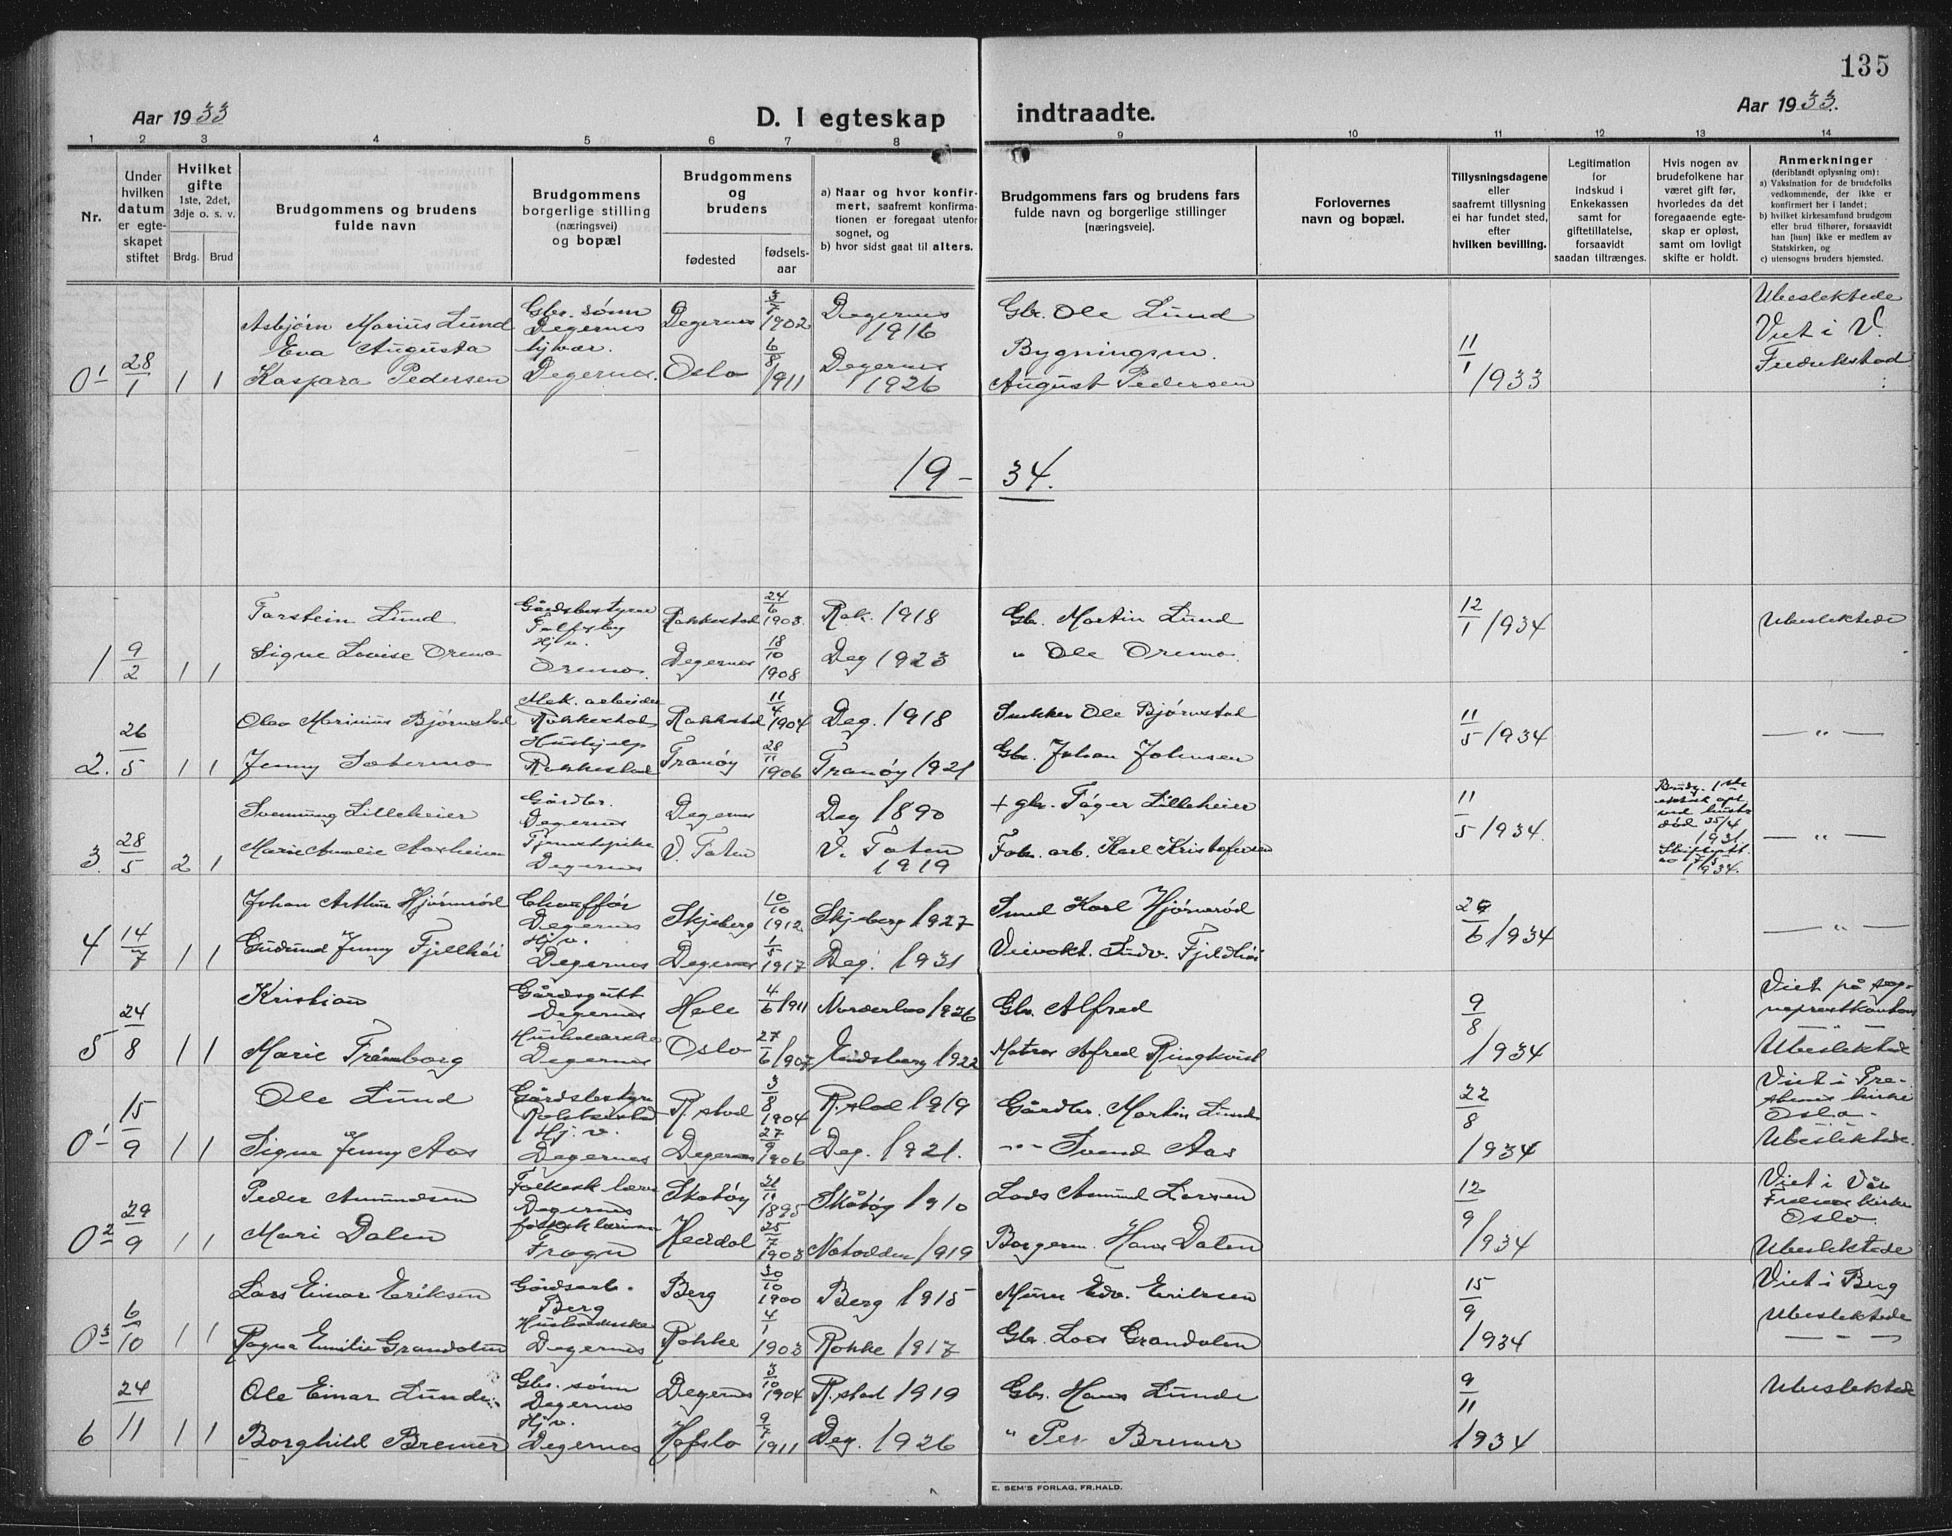 135
Aar 1933
D. I egteskap indtraadte.
Aar 1933.
1 2 3 4 5 6 7 8 9 10 11 12 13 14
Nr.
Under
hvilken
datum
er egte-
skapet
stiftet
Hvilket
gifte
1ste, 2det,
3dje o. s. v.
Brdg. Brud
Brudgommens og brudens
fulde navn
Brudgommens og brudens
borgerlige stilling
(næringsvei)
og bopæl
Brudgommens
og
brudens
fødested
fødsels-
aar
a) Naar og hvor konfir-
mert, saafremt konfirma-
tionen er foregaat utenfor
sognet, og
b) hvor sidst gaat til alters.
Brudgommens fars og brudens fars
fulde navn og borgerlige stillinger
(næringsveie).
Forlovernes
navn og bopæl.
Tillysningsdagene
eller
saafremt tillysning
ei har fundet sted,
efter
hvilken bevilling.
Legitimation
for
indskud i
Enkekassen
samt for
giftetillatelse,
forsaavidt
saadan tiltrænges.
Hvis nogen av
brudefolkene har
været gift før,
hvorledes da det
foregaaende egte-
skap er opløst,
samt om lovligt
skifte er holdt.
Anmerkninger
(deriblandt oplysning om):
a) Vaksination for de brudefolks
vedkommende, der ikke er
konfirmert her i landet;
b) hvilket kirkesamfund brudgom
eller brud tilhører, forsaavidt
han [hun] ikke er medlem av
Statskirken, og
c) utensogns bruders hjemsted.
0¹ 28/1 1 1
Asbjørn Marius Lund Gbr. sønn Degernes Degernes 3/7 1902 Degernes 1916 Gbr. Ole Lund
Eva Augusta Kaspara Pedersen hj.vær. Degernes. Oslo 6/8 1911 Degernes 1926 Bygningsm. August Pedersen
11/1 1933
Ubeslektede
Viet i V.
Fredrikstad
19 - 34.
1 9/2 1 1
Torstein Lund Gårdsbestyrer Rakkestad 24/6 1903. Rak. 1918 Gbr. Martin Lund
Signe Lovise Oremo Hj v. Oremo. Degernes 18/10 1908 Deg 1923 " Ole Oremo.
12/1 1934
Ubeslektede
2. 26/5 1 1
Olav Marinius Bjørnstad Mek. arbeider Rakkestad Rakkestad 11/4 1904 Deg. 1918 Snekker Ole Bjørnstad
Jenny Sætermo Hushjelp Rakkestad Tranøy 28/11 1906 Tranøy 1921 Gbr. Johan Johnsen
11/5 1934
— " —
3. 28/5 2 1
Svennung Lilleheier Gårdbr. Degernes Degernes Deg 1890 + gbr. Tøger Lilleheier
Marie Amalie Degernes V. Toten V. Toten 1919 Fabr. arb. Karl Kristofersen
11/5 1934.
Brudg. 1ste
død 25/4
1931
1934.
— " —
4 14/7 1 1
Johan Arthur Hjørnerød Chauffør Degernes Skjeberg 10/10 1912 Skjeberg 1927 Smed Karl Hjørnerød
Gudrund Jenny Fjellhøi Hj v. Degernes Degernes 1/5 1917 Deg. 1931 Veivokt. Ludv. Fjeldhøi
29/6 1934
— " —
5 24/8 1 1
Kristian Gårdsgutt Degernes 4/6 1911 1926 Gbr. Alfred
Marie Trømborg Degernes Oslo 27/6 1907 Eidsberg 1922 Matros Alfred Ringkvist
9/8 1934
Viet på sog-
neprestkontor
Ubeslektede
0¹ 15/9 1 1
Ole Lund Gårdsbestyrer Rakkestad R. stad 3/8 1904 R. stad 1919 Gårdbr. Martin Lund
Signe Jenny Aas Hj. v. Degernes Degernes 27/9 1906 Deg. 1921. -"- Svend Aas
22/8 1934
Viet i
kirke
Oslo -
Ubeslektede.
0² 29/9 1 1
Peder Amundsen Folkesk. lærer Degernes Skåtøy 1895 Skåtøy 1910 Lods Amund Larsen
Mari Dalen folkesk. lærerinne Frogn Heddal 25/7 1903 Notodden 1919 Borgerm. Hans Dalen
12/9 1934
Viet i Vår
Frelsers kirke
Oslo.
Ubeslektede
0³ 6/10 1 1
Lars Einar Eriksen Gårdsarb. Berg Berg 30/10 1900 Berg 1915 Murer Edv. Eriksen
Ragna Emilie Grandalen Degernes Rokke 4/1 1903 Rokke 1917 Gbr. Lars Grandalen
15/9 1934
Viet i Berg
Ubeslektede
— " —
6 24/11 1 1
Ole Einar Lunde Gbr. sønn Degernes Degernes 3/10 1904 R. stad 1919 Gbr. Hans Lunde
Borghild Bremer Hj v. Degernes Hafslo 9/7 1911 Deg. 1926 " Per Bremer
9/11 1934
Ubeslektede
E. SEM'S FORLAG, FR.HALD.